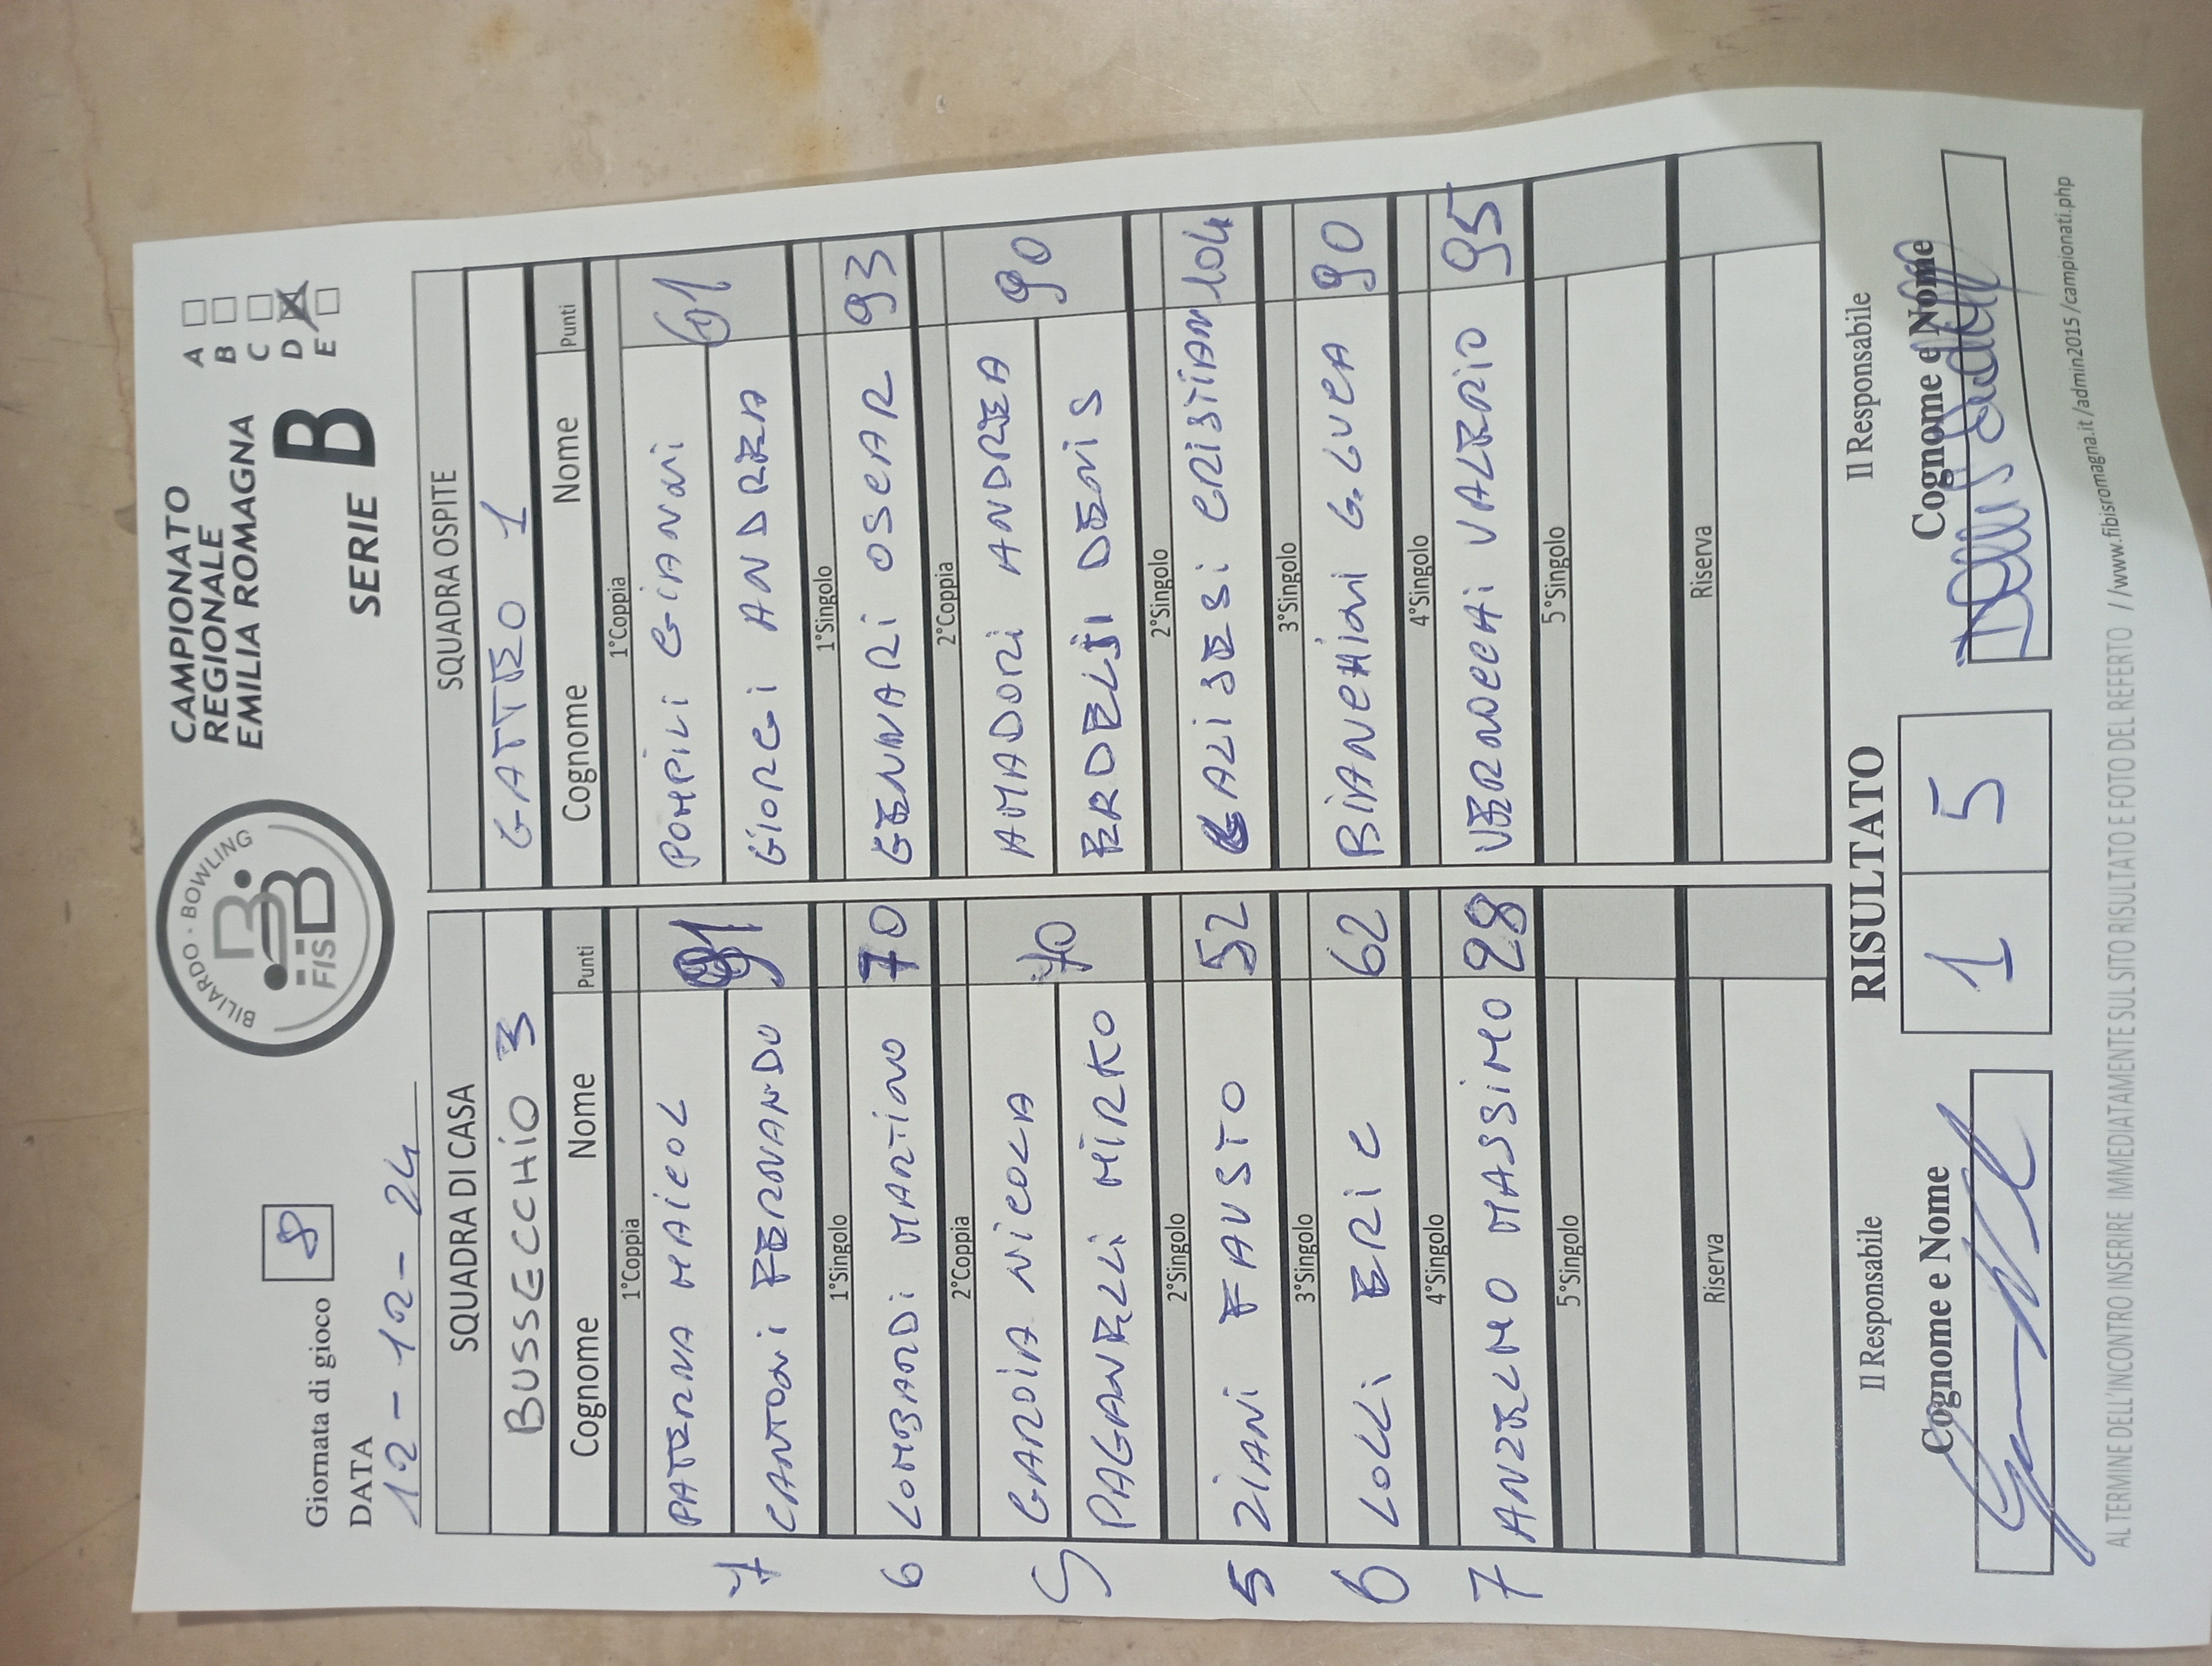 Giornata di gioco 8
DATA
12-12-24
BILIARDO · BOWLING
FISBB
CAMPIONATO
REGIONALE
EMILIA ROMAGNA
SERIE B
A
B
C
D
E
SQUADRA DI CASA
BUSSECCHIO 3
Cognome Nome Punti
1°Coppia
PATERNA MAICOL 91
CANTONI FERNANDO
7
1°Singolo
6 LOMBARDI MARTINO 70
2°Coppia
GAROIA NICOLA 70
PAGANELLI MIRKO
5
2°Singolo
5 ZIANI FAUSTO 52
3°Singolo
6 LOLLI ERIC 62
4°Singolo
7 ANZELMO MASSIMO 28
5°Singolo
Riserva
SQUADRA OSPITE
GATTEO 1
Cognome Nome Punti
1°Coppia
POMPILI GIANNI 61
GIORGI ANDREA
1°Singolo
GENNARI OSCAR 93
2°Coppia
AMADORI ANDREA 90
DENIS
2°Singolo
CALISESI CRISTIAN 104
3°Singolo
BIANCHINI G.LUCA 90
4°Singolo
VERNOCCHI VALERIO 95
5°Singolo
Riserva
Il Responsabile
Cognome e Nome
RISULTATO
1 5
Il Responsabile
Cognome e Nome
AL TERMINE DELL'INCONTRO INSERIRE IMMEDIATAMENTE SUL SITO RISULTATO E FOTO DEL REFERTO //www.fibisromagna.it/admin2015/campionati.php